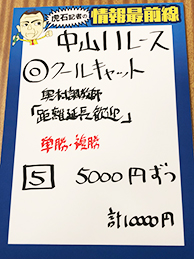 虎石記者の
情報最前線
中山11レース
◎クールキャット
奥村武調教師
「距離延長歓迎」
単勝・複勝
5 5000円ずつ
計10000円